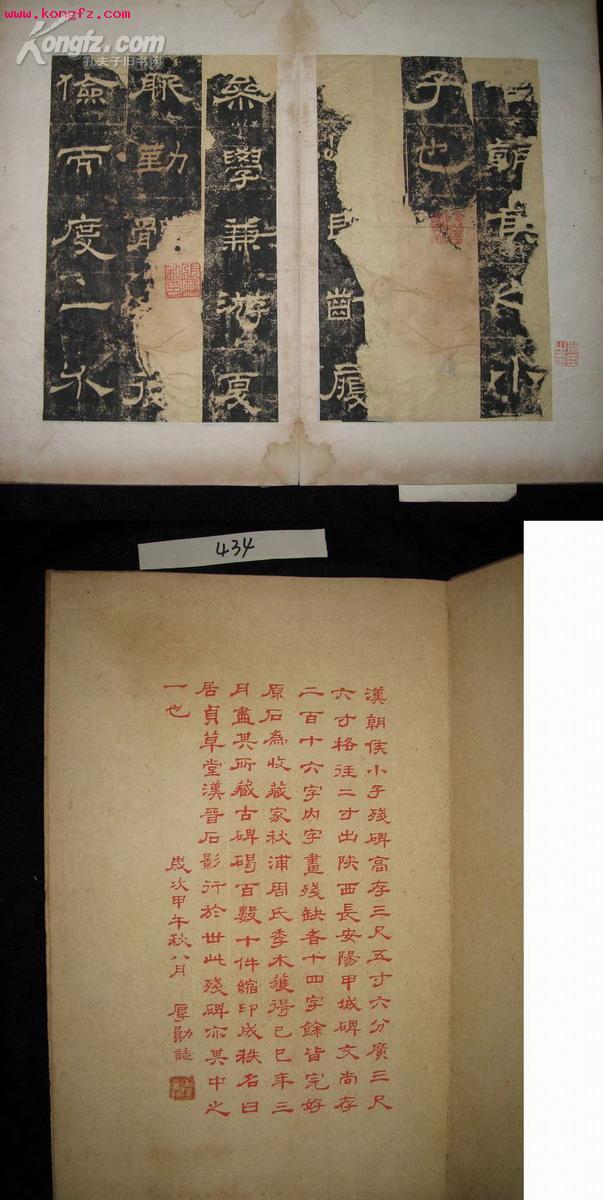 www.kongfz.com
Kongfz.com
孔夫子旧书网
朝侯之小
子也
齒履
學兼游夏
服勤
儉而度一
434
漢朝侯小子殘碑高存三尺五寸六分廣三尺
六寸格徑二寸出陝西長安陽甲城碑文尚存
二百十六字內字畫殘缺者十四字餘皆完好
原石為收藏家秋浦周氏季木獲得己巳年三
月盡其所藏古碑碣百數十件縮印成秩名曰
居貞草堂漢晉石影行於世此殘碑亦其中之
一也
歲次甲午秋八月 厚勛誌